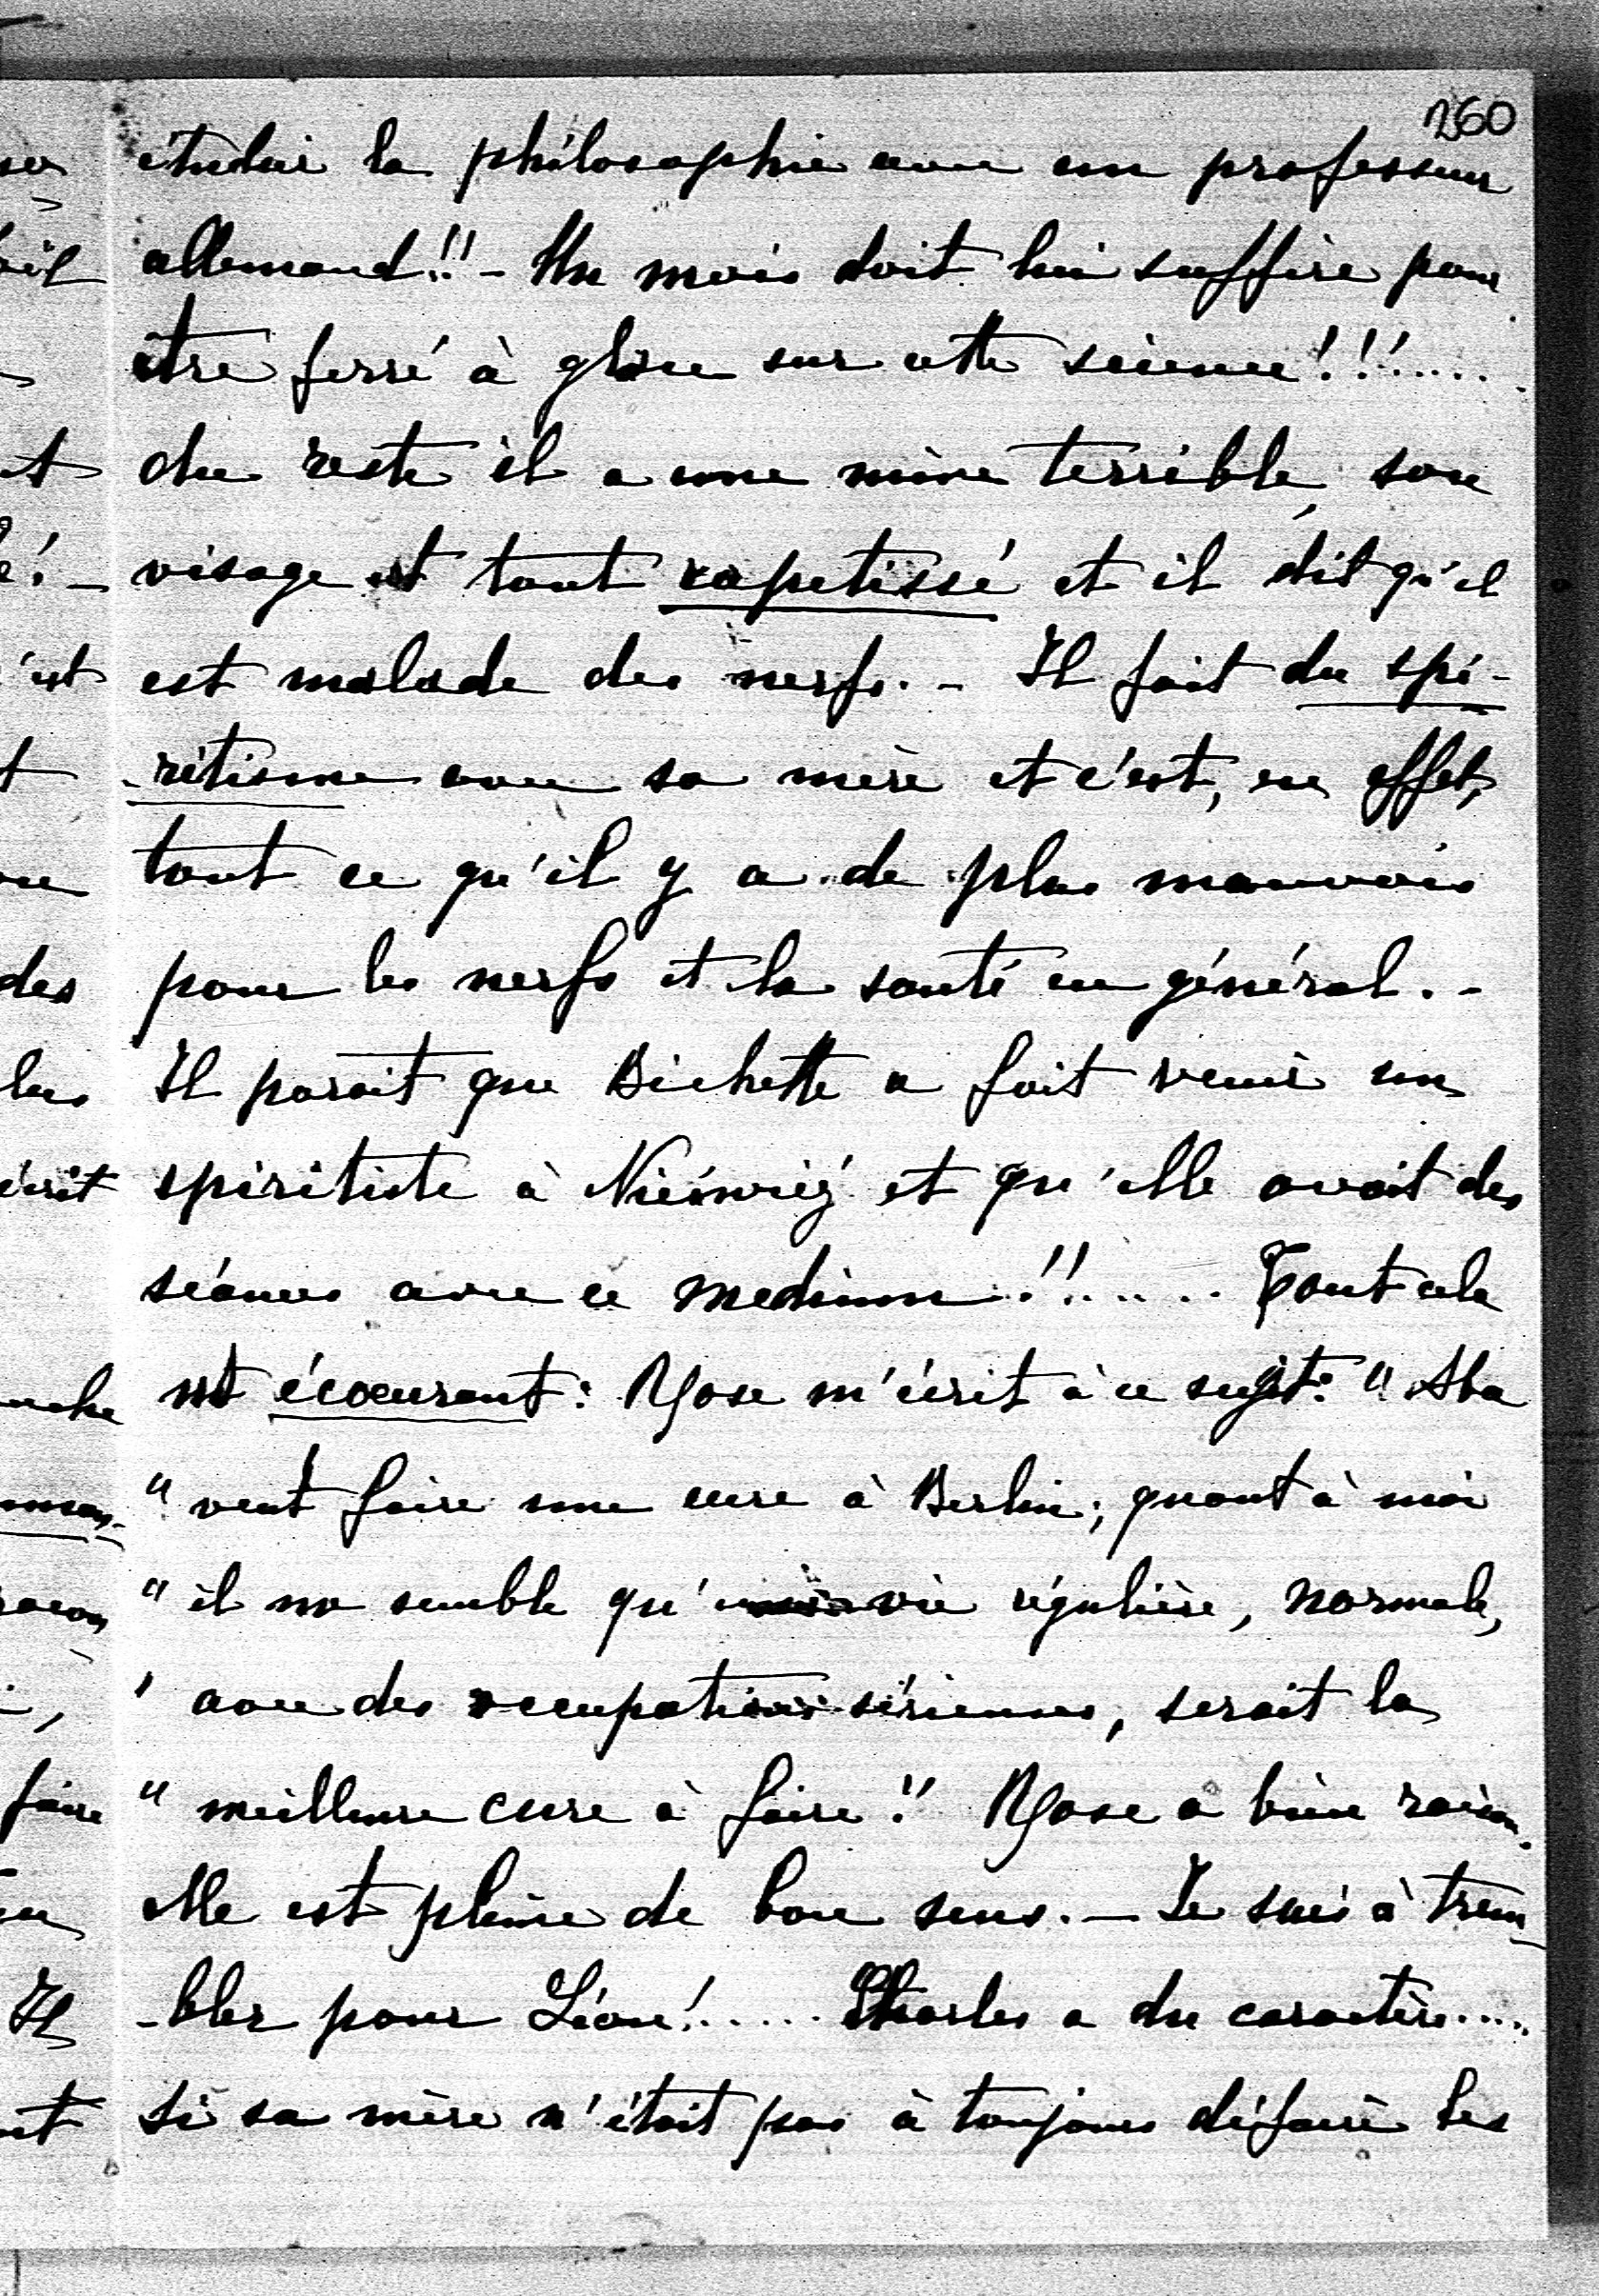 260
étudier la philosophie avec un professeur
allemand!! - Un mois doit lui suffire pour
être ferré à glace sur cette science!!!......
du reste il a une mine terrible, son
visage est tout rapetissé et il dit qu'il
est malade des nerfs. - Il fait du spi-
-ritisme avec sa mère et c'est, en effet,
tout ce qu'il y a de plus mauvais
pour les nerfs et la santé en général. -
Il parait que Bichette a fait venir un
spiritiste à Nieśwież et qu'elle avait des
séances avec ce medium!!..... Tout cela
est écoeurant: Rose m'écrit à ce sujet: "Aba
" veut faire une cure à Berlin; quant à moi
" il me semble qu'une vie régulière, normale,
" avec des occupations sérieuses, serait la
" meilleure cure à faire!" Rose a bien raison.
Elle est pleine de bon sens. - Je suis à trem
-bler pour Léon!..... Charles a du caractère....
Si sa mère n'était pas à toujours défaire les